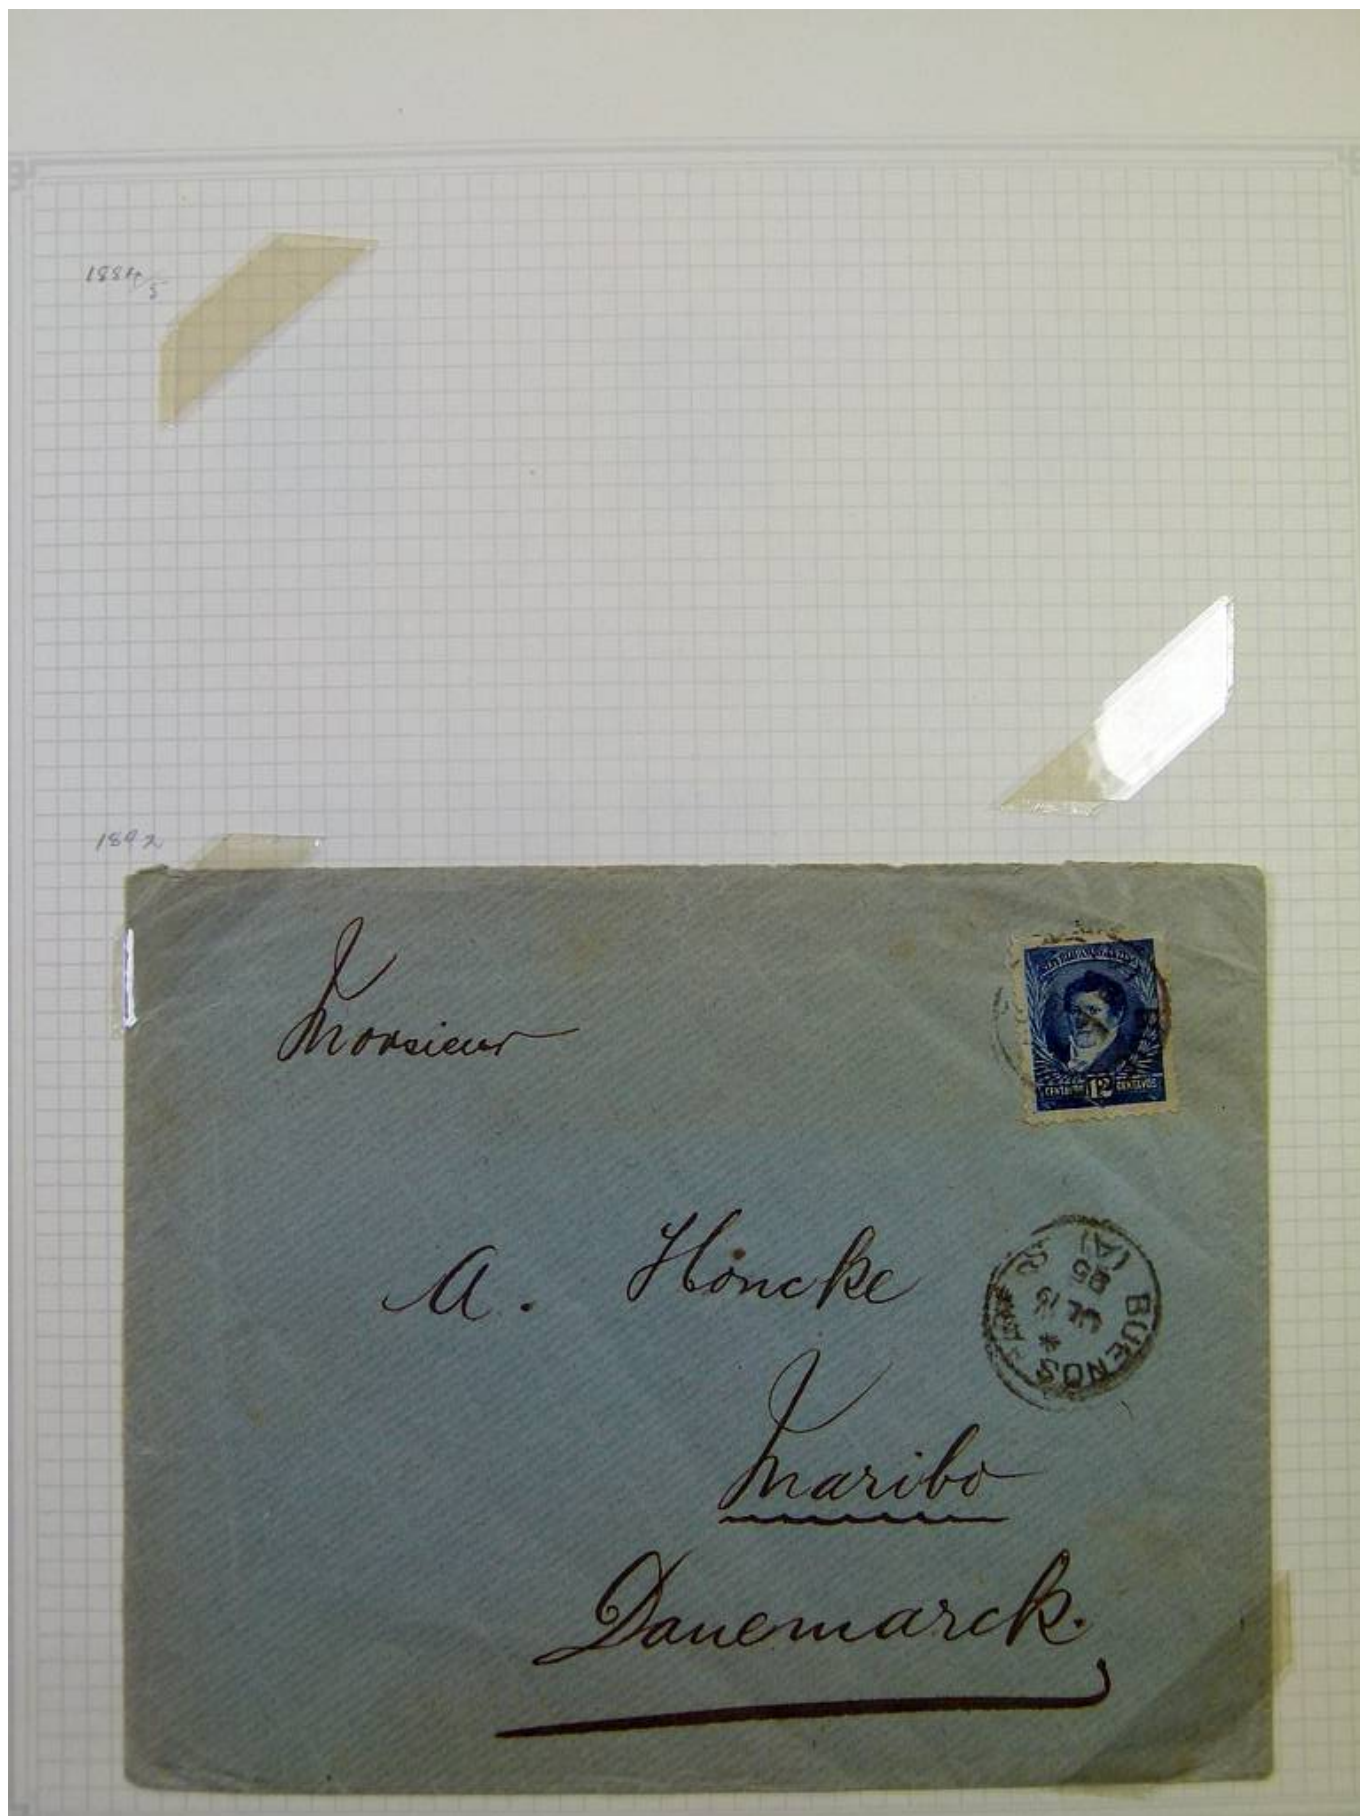 1884/5
1892
Monsieur
REPUBLICA ARGENTINA
CENTAVOS 12 CENTAVOS
A. Höncke
BUENOS
(A)
95
Maribo
Danemarck.